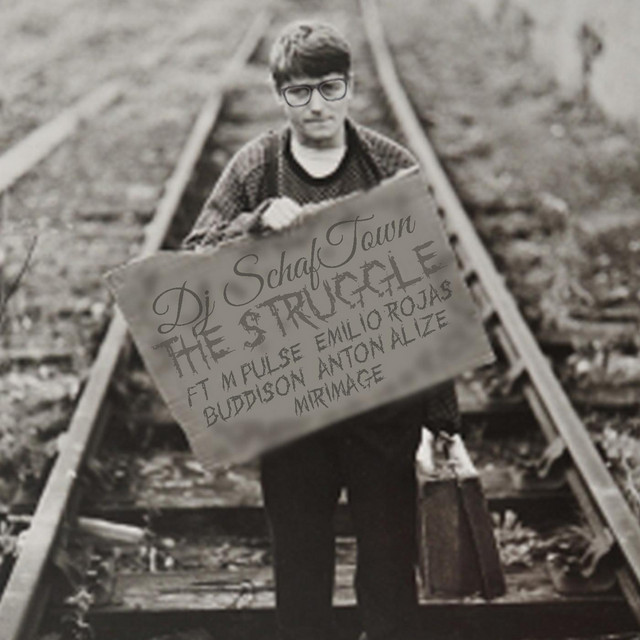 Dj SchafTown
THE STRUGGLE
FT M PULSE EMILIO ROJAS
BUDDISON ANTON ALIZE
MIRIMAGE